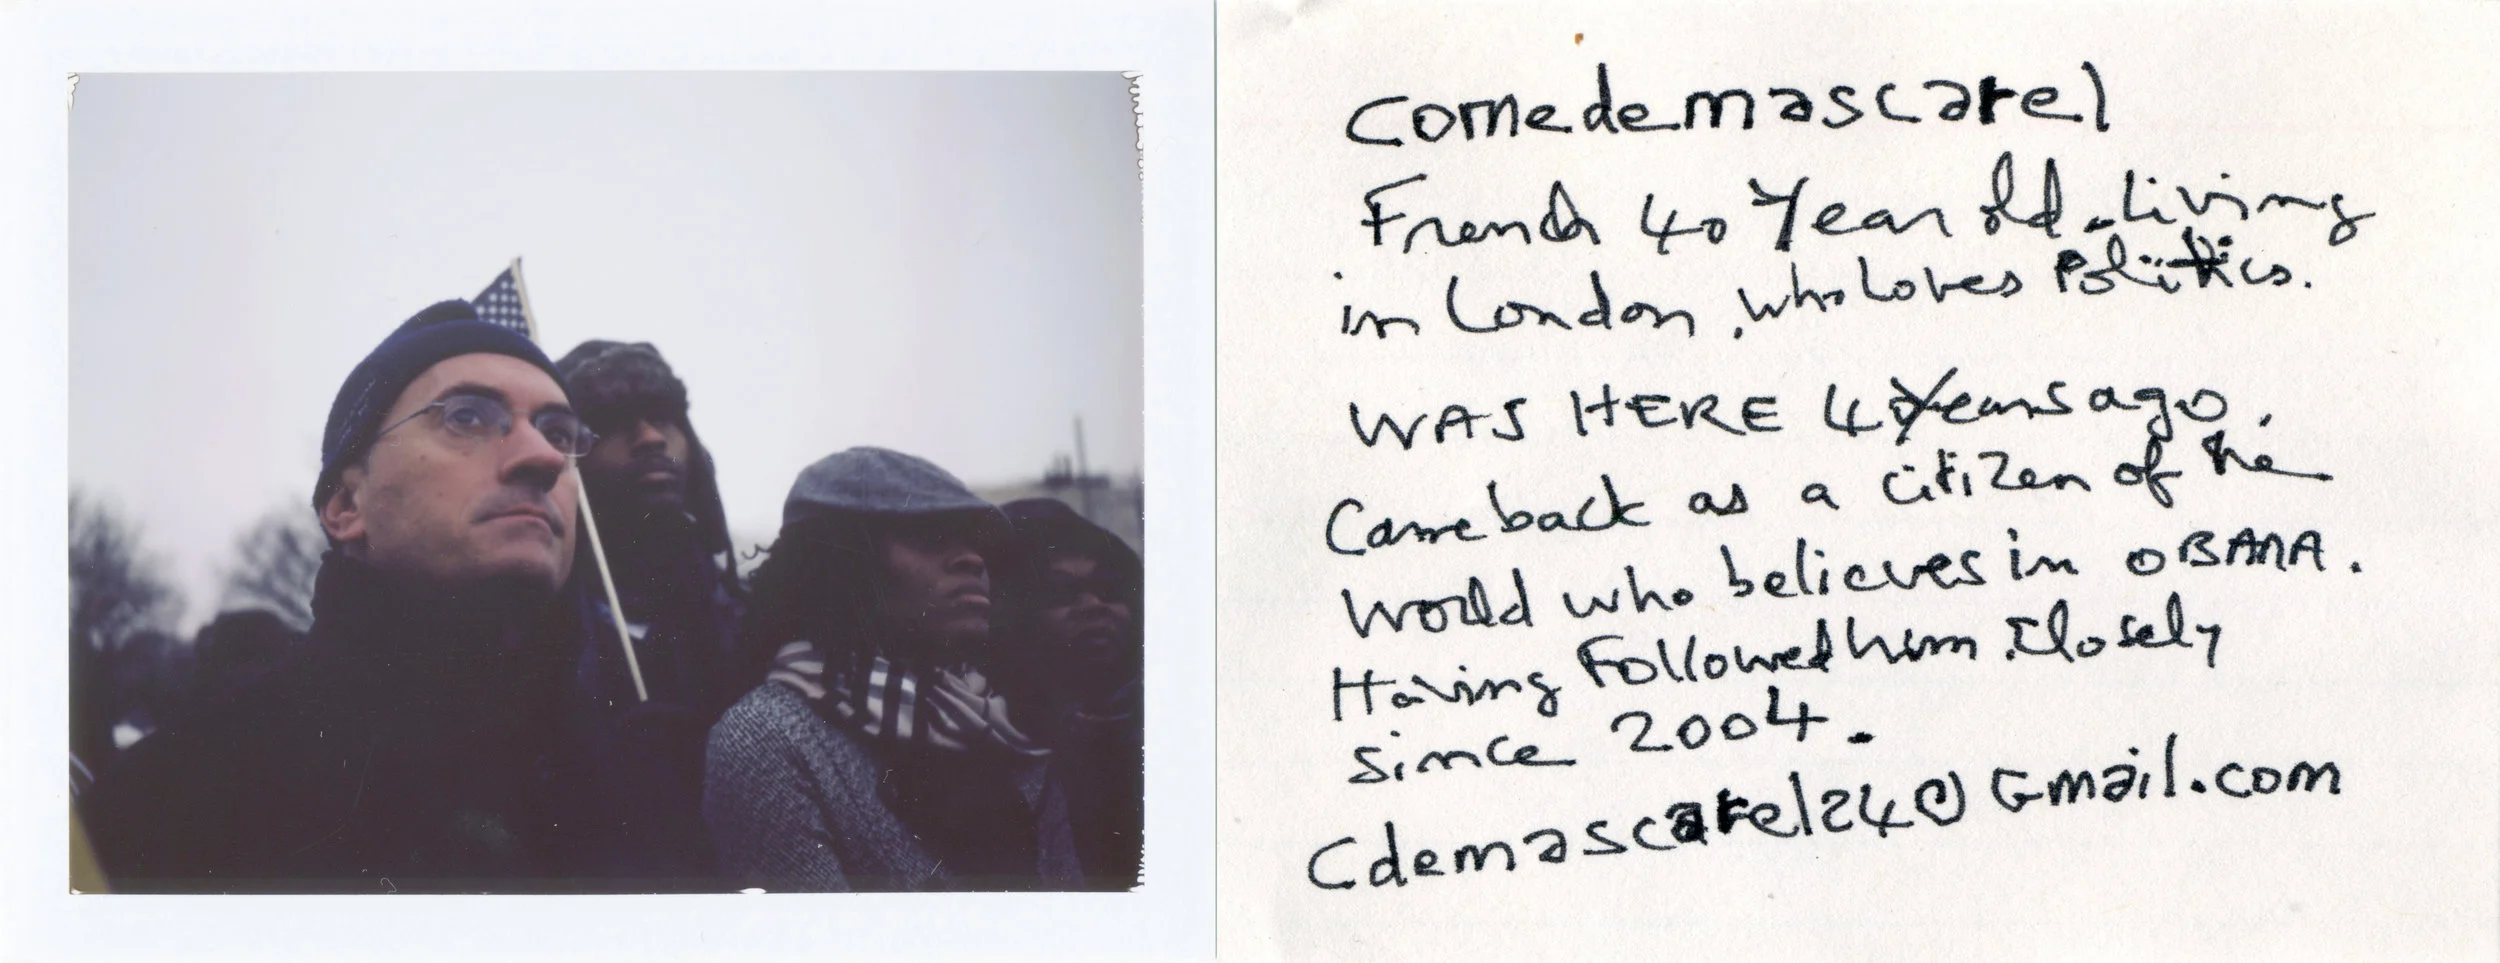 comedemascarel
French 40 Year old. Living
in London, who loves Politics.
WAS HERE 4 Years ago,
Came back as a citizen of the
World who believes in OBAMA.
Having Followed him Closely
since 2004.
Cdemascarel24@Gmail.com